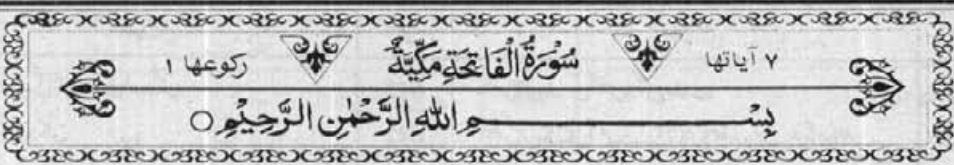 ۷ آیاتها سُوْرَةُ الْفَاتِحَةِ مَكِّيَّةٌ رکوعها ۱
بِسْــــــــمِ اللّٰهِ الرَّحْمٰنِ الرَّحِيْمِ ○